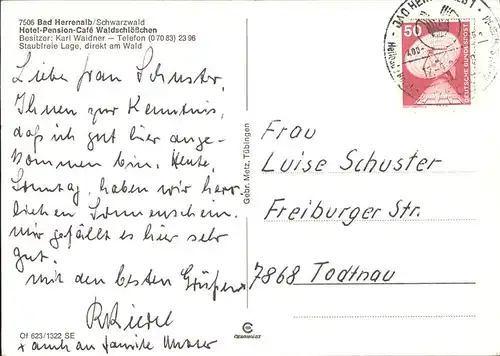 7506 Bad Herrenalb/Schwarzwald
Hotel-Pension-Café Waldschlößchen
Besitzer: Karl Waidner — Telefon (07083) 2396
Staubfreie Lage, direkt am Wald
Liebe Frau Schuster,
Ihnen zur Kenntnis,
daß ich gut hier ange-
kommen bin. Heute,
Sonntag, haben wir herr-
lichen Sonnenschein.
Mir gefällt es hier sehr
gut.
Mit den besten Grüßen
+ auch an Familie
Of 623/1322 SE
Gebr. Metz, Tübingen
50
DEUTSCHE BUNDESPOST
BAD HERRENALB 1
Frau
Luise Schuster
Freiburger Str.
7868 Todtnau